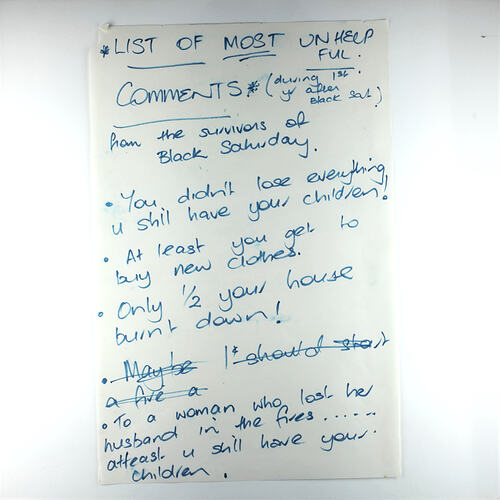 *LIST OF MOST UNHELP
FUL.
COMMENTS* (during 1st
yr after
Black Sat.)
from the survivors of
Black Saturday.
• You didn't lose everything
u still have your children!
• At least you get to
buy new clothes.
• Only 1/2 your house
burnt down!
• Maybe I* should start
a fire a
• To a woman who lost her
husband in the fires ......
atleast u still have your
children.